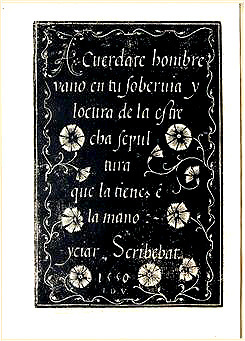 ACuerdate hombre
vano en tu soberuia y
locura de la estre
cha sepul
tura
que la tienes é
la mano
yciar Scribebat
1550
I.D.V.